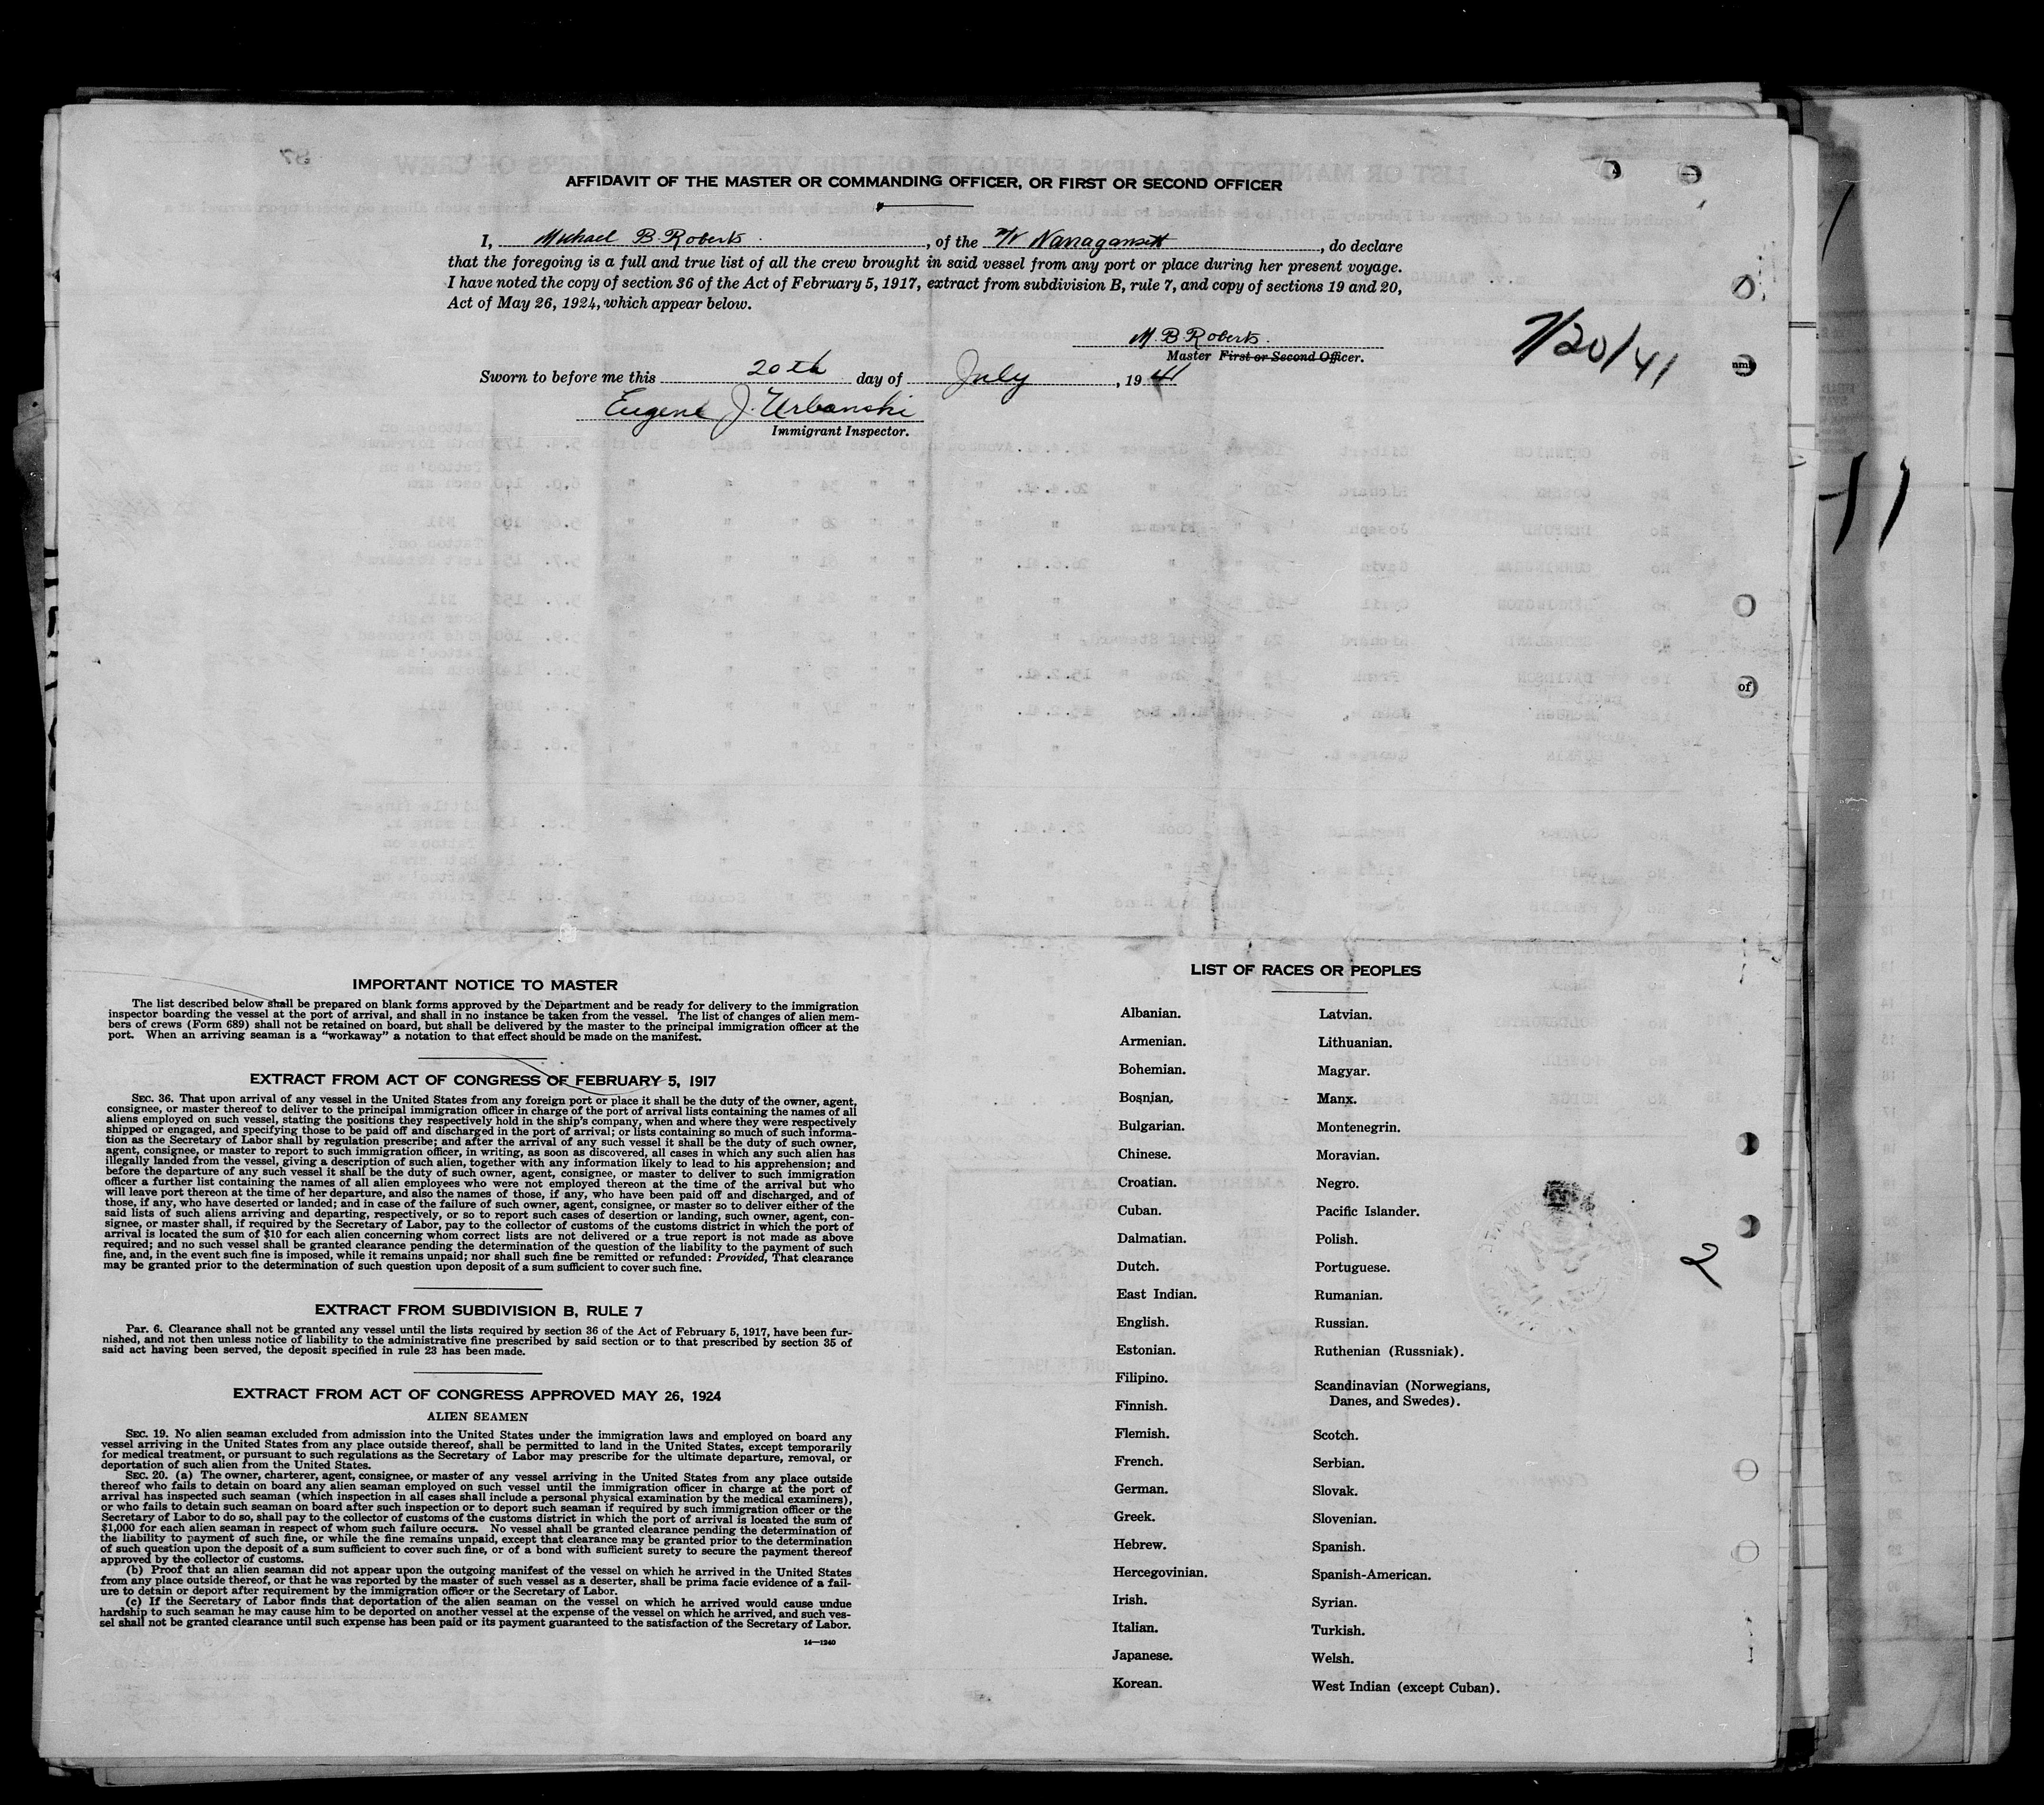 AFFIDAVIT OF THE MASTER OR COMMANDING OFFICER, OR FIRST OR SECOND OFFICER
I, Michael B. Roberts, of the M/V Narragansett, do declare
that the foregoing is a full and true list of all the crew brought in said vessel from any port or place during her present voyage.
I have noted the copy of section 36 of the Act of February 5, 1917, extract from subdivision B, rule 7, and copy of sections 19 and 20,
Act of May 26, 1924, which appear below.
M. B Roberts.
Master First or Second Officer.
7/20/41
Sworn to before me this 20th day of July, 1941
Eugene J. Urbanski
Immigrant Inspector.
11
nml
of
IMPORTANT NOTICE TO MASTER
The list described below shall be prepared on blank forms approved by the Department and be ready for delivery to the immigration
inspector boarding the vessel at the port of arrival, and shall in no instance be taken from the vessel. The list of changes of alien mem-
bers of crews (Form 689) shall not be retained on board, but shall be delivered by the master to the principal immigration officer at the
port. When an arriving seaman is a "workaway" a notation to that effect should be made on the manifest.
EXTRACT FROM ACT OF CONGRESS OF FEBRUARY 5, 1917
SEC. 36. That upon arrival of any vessel in the United States from any foreign port or place it shall be the duty of the owner, agent,
consignee, or master thereof to deliver to the principal immigration officer in charge of the port of arrival lists containing the names of all
aliens employed on such vessel, stating the positions they respectively hold in the ship's company, when and where they were respectively
shipped or engaged, and specifying those to be paid off and discharged in the port of arrival; or lists containing so much of such informa-
tion as the Secretary of Labor shall by regulation prescribe; and after the arrival of any such vessel it shall be the duty of such owner,
agent, consignee, or master to report to such immigration officer, in writing, as soon as discovered, all cases in which any such alien has
illegally landed from the vessel, giving a description of such alien, together with any information likely to lead to his apprehension; and
before the departure of any such vessel it shall be the duty of such owner, agent, consignee, or master to deliver to such immigration
officer a further list containing the names of all alien employees who were not employed thereon at the time of the arrival but who
will leave port thereon at the time of her departure, and also the names of those, if any, who have been paid off and discharged, and of
those, if any, who have deserted or landed; and in case of the failure of such owner, agent, consignee, or master so to deliver either of the
said lists of such aliens arriving and departing, respectively, or so to report such cases of desertion or landing, such owner, agent, con-
signee, or master shall, if required by the Secretary of Labor, pay to the collector of customs of the customs district in which the port of
arrival is located the sum of $10 for each alien concerning whom correct lists are not delivered or a true report is not made as above
required; and no such vessel shall be granted clearance pending the determination of the question of the liability to the payment of such
fine, and, in the event such fine is imposed, while it remains unpaid; nor shall such fine be remitted or refunded: Provided, That clearance
may be granted prior to the determination of such question upon deposit of a sum sufficient to cover such fine.
EXTRACT FROM SUBDIVISION B, RULE 7
PAR. 6. Clearance shall not be granted any vessel until the lists required by section 36 of the Act of February 5, 1917, have been fur-
nished, and not then unless notice of liability to the administrative fine prescribed by said section or to that prescribed by section 35 of
said act having been served, the deposit specified in rule 23 has been made.
EXTRACT FROM ACT OF CONGRESS APPROVED MAY 26, 1924
ALIEN SEAMEN
SEC. 19. No alien seaman excluded from admission into the United States under the immigration laws and employed on board any
vessel arriving in the United States from any place outside thereof, shall be permitted to land in the United States, except temporarily
for medical treatment, or pursuant to such regulations as the Secretary of Labor may prescribe for the ultimate departure, removal, or
deportation of such alien from the United States.
SEC. 20. (a) The owner, charterer, agent, consignee, or master of any vessel arriving in the United States from any place outside
thereof who fails to detain on board any alien seaman employed on such vessel until the immigration officer in charge at the port of
arrival has inspected such seaman (which inspection in all cases shall include a personal physical examination by the medical examiners),
or who fails to detain such seaman on board after such inspection or to deport such seaman if required by such immigration officer or the
Secretary of Labor to do so, shall pay to the collector of customs of the customs district in which the port of arrival is located the sum of
$1,000 for each alien seaman in respect of whom such failure occurs. No vessel shall be granted clearance pending the determination of
the liability to payment of such fine, or while the fine remains unpaid, except that clearance may be granted prior to the determination
of such question upon the deposit of a sum sufficient to cover such fine, or of a bond with sufficient surety to secure the payment thereof
approved by the collector of customs.
(b) Proof that an alien seaman did not appear upon the outgoing manifest of the vessel on which he arrived in the United States
from any place outside thereof, or that he was reported by the master of such vessel as a deserter, shall be prima facie evidence of a fail-
ure to detain or deport after requirement by the immigration officer or the Secretary of Labor.
(c) If the Secretary of Labor finds that deportation of the alien seaman on the vessel on which he arrived would cause undue
hardship to such seaman he may cause him to be deported on another vessel at the expense of the vessel on which he arrived, and such ves-
sel shall not be granted clearance until such expense has been paid or its payment guaranteed to the satisfaction of the Secretary of Labor.
14—1240
LIST OF RACES OR PEOPLES
Albanian.
Armenian.
Bohemian.
Bosnian.
Bulgarian.
Chinese.
Croatian.
Cuban.
Dalmatian.
Dutch.
East Indian.
English.
Estonian.
Filipino.
Finnish.
Flemish.
French.
German.
Greek.
Hebrew.
Hercegovinian.
Irish.
Italian.
Japanese.
Korean.
Latvian.
Lithuanian.
Magyar.
Manx.
Montenegrin.
Moravian.
Negro.
Pacific Islander.
Polish.
Portuguese.
Rumanian.
Russian.
Ruthenian (Russniak).
Scandinavian (Norwegians,
Danes, and Swedes).
Scotch.
Serbian.
Slovak.
Slovenian.
Spanish.
Spanish-American.
Syrian.
Turkish.
Welsh.
West Indian (except Cuban).
2